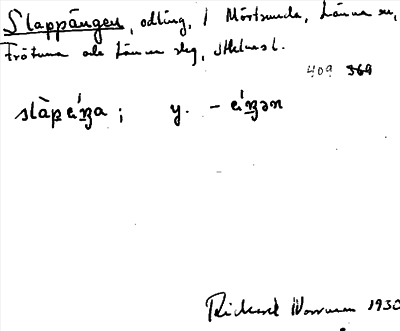 Slappängen, odling, i Mörtsunda, Länna sn,
Frötuna och Länna slg, Sthlms l.
409 369
slàpeŋa; y. - eŋən
Rickard 1930